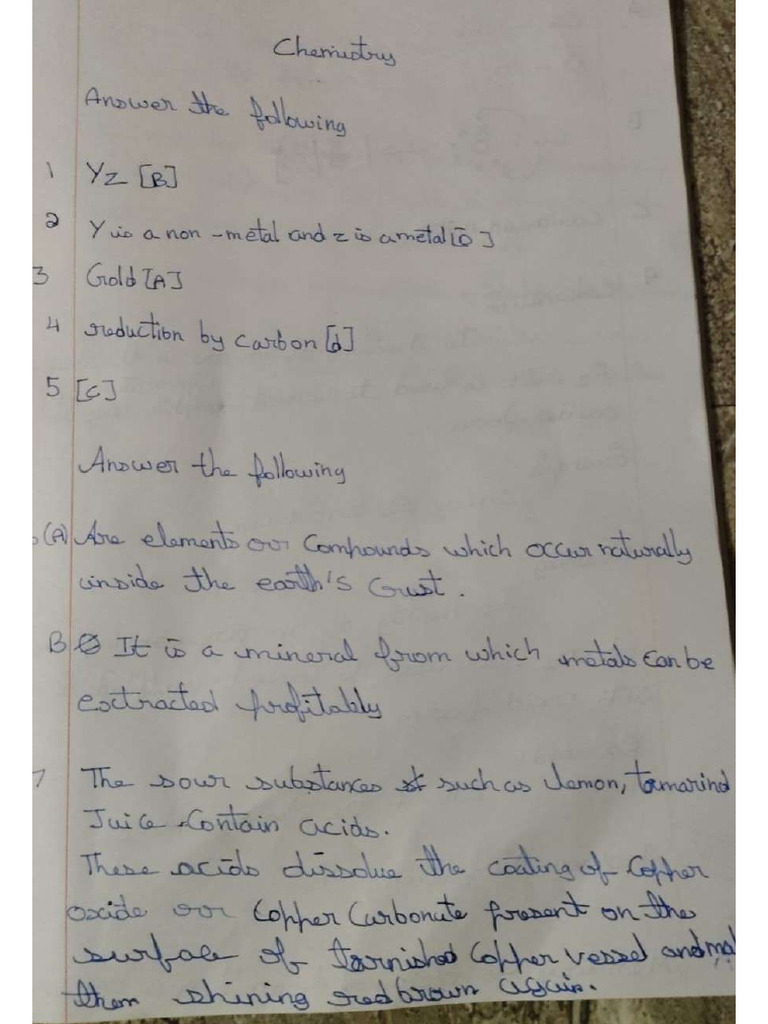 Chemistry
Answer the following
1 YZ [B]
2 Y is a non-metal and z is a metal [D]
3 Gold [A]
4 reduction by carbon [d]
5 [C]
Answer the following
(A) Are elements or Compounds which occur naturally
inside the earth's Crust.
B It is a mineral from which metals can be
extracted profitably
7 The sour substances such as lemon, tamarind
Juice Contain acids.
These acids dissolve the coating of Copper
oxide or Copper Carbonate present on the
surface of tarnished Copper vessel and
them shining red brown again.